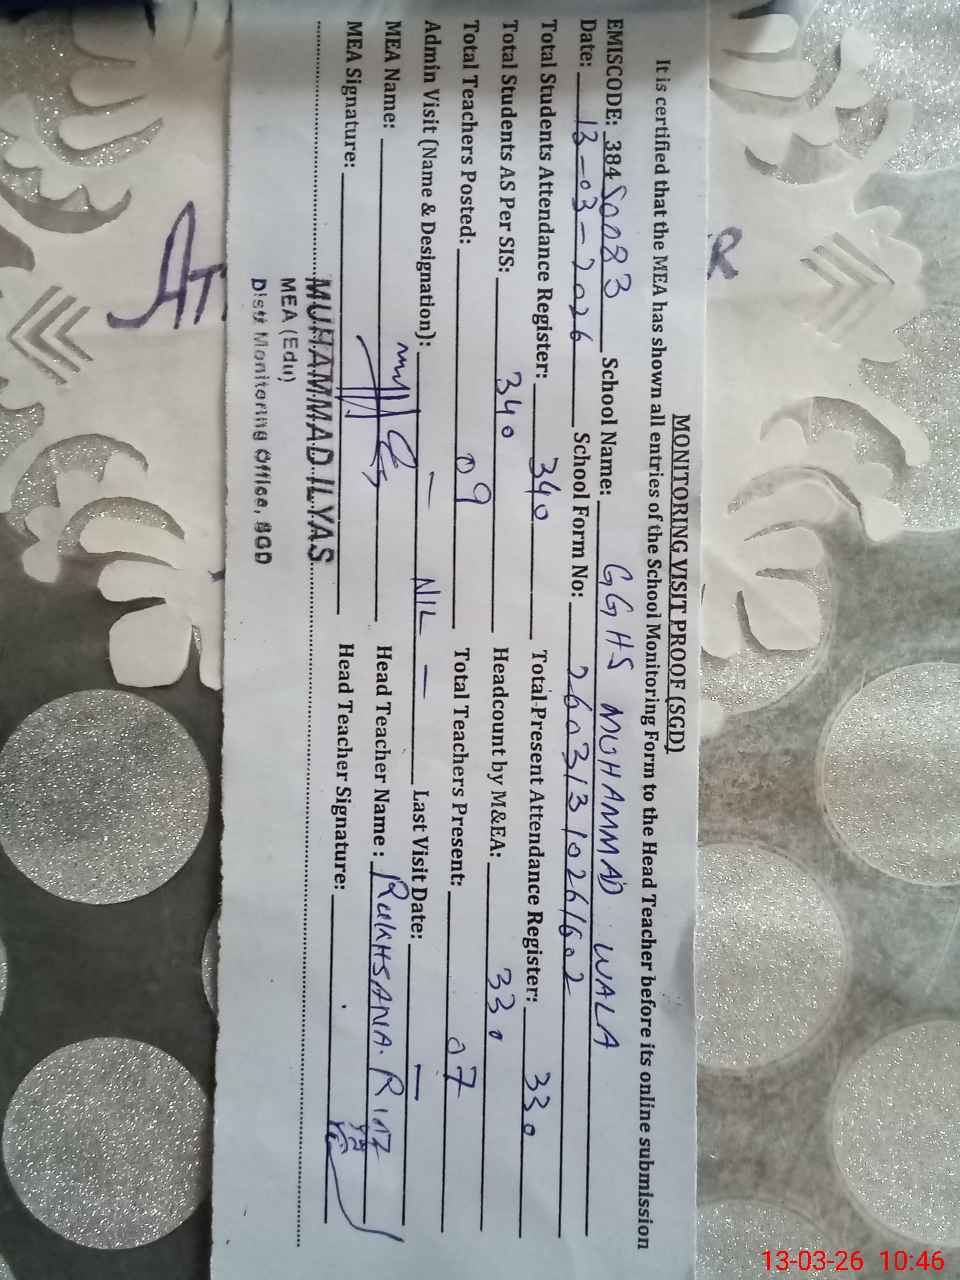 MONITORING VISIT PROOF (SGD)
It is certified that the MEA has shown all entries of the School Monitoring Form to the Head Teacher before its online submission
EMISCODE: 38450083 School Name: GGHS MUHAMMAD WALA
Date: 13-03-2026 School Form No: 26031310261602
Total Students Attendance Register: 340 Total Present Attendance Register: 330
Total Students AS Per SIS: 340 Headcount by M&EA: 330
Total Teachers Posted: 09 Total Teachers Present: 07
Admin Visit (Name & Designation): — NIL — Last Visit Date: —
MEA Name: Head Teacher Name : RUKHSANA. RIAZ
MEA Signature: Head Teacher Signature:
MUHAMMAD ILYAS
MEA (Edu)
Distt Monitoring Office, SGD
AT
R
13-03-26 10:46